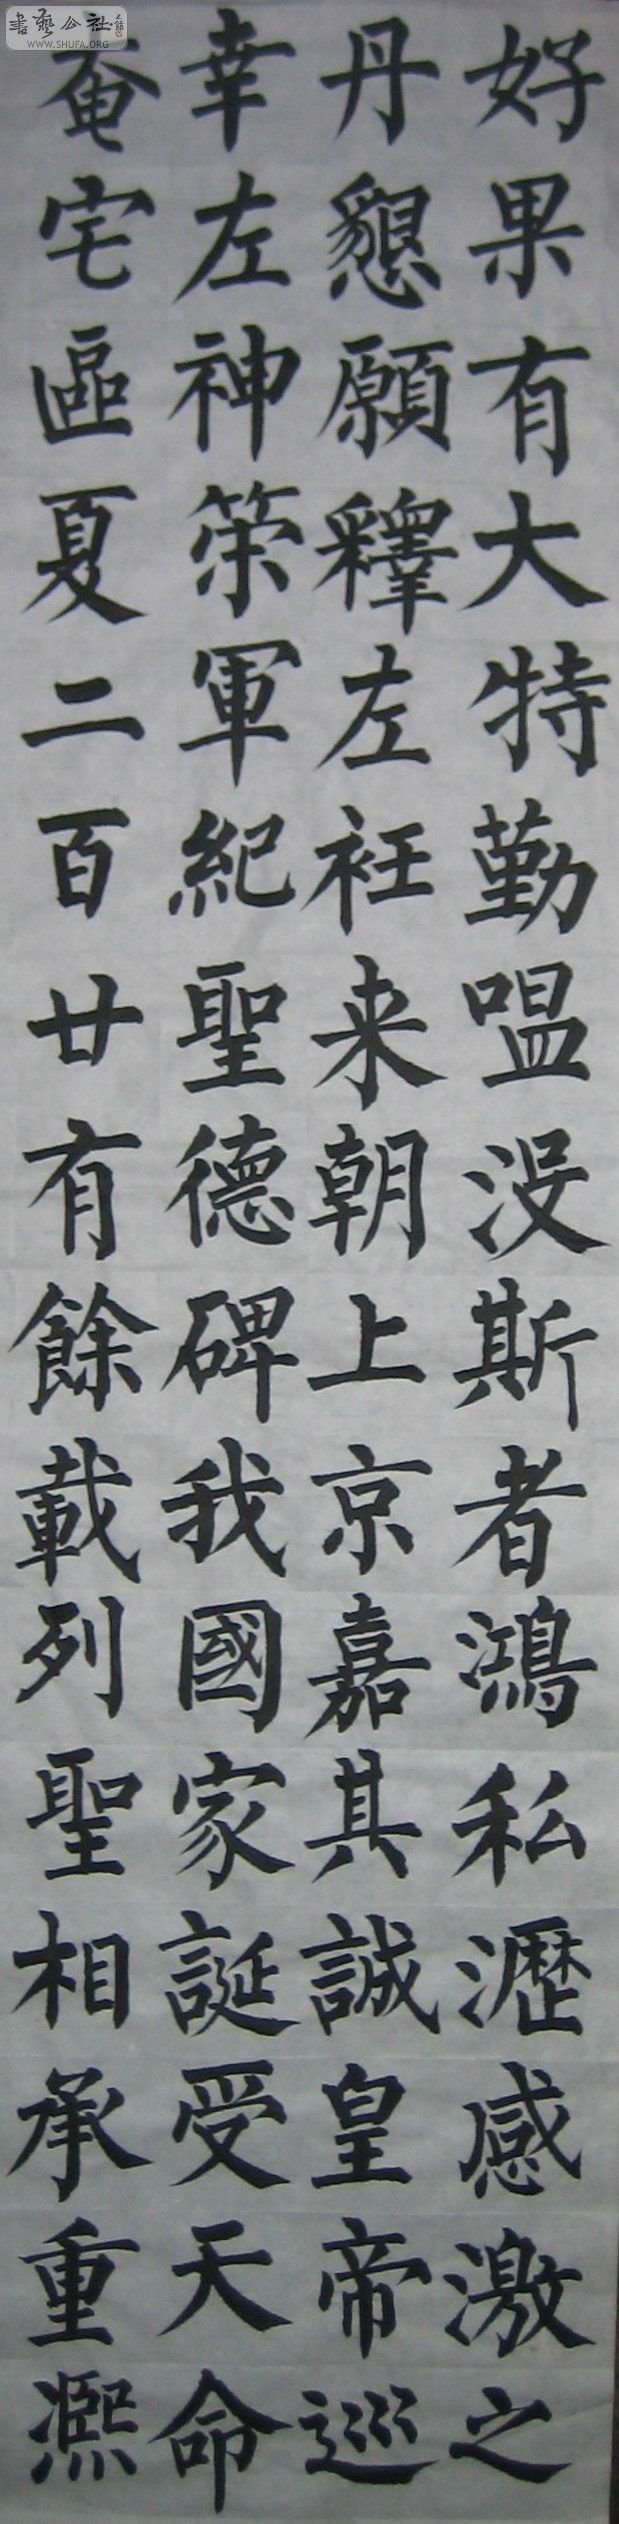 好果有大特勤嗢没斯者鴻私瀝感激之
丹懇願釋左衽来朝上京嘉其誠皇帝巡
幸左神策軍紀聖德碑我國家誕受天命
奄宅區夏二百廿有餘載列聖相承重熙
書藝公社
WWW.SHUFA.ORG